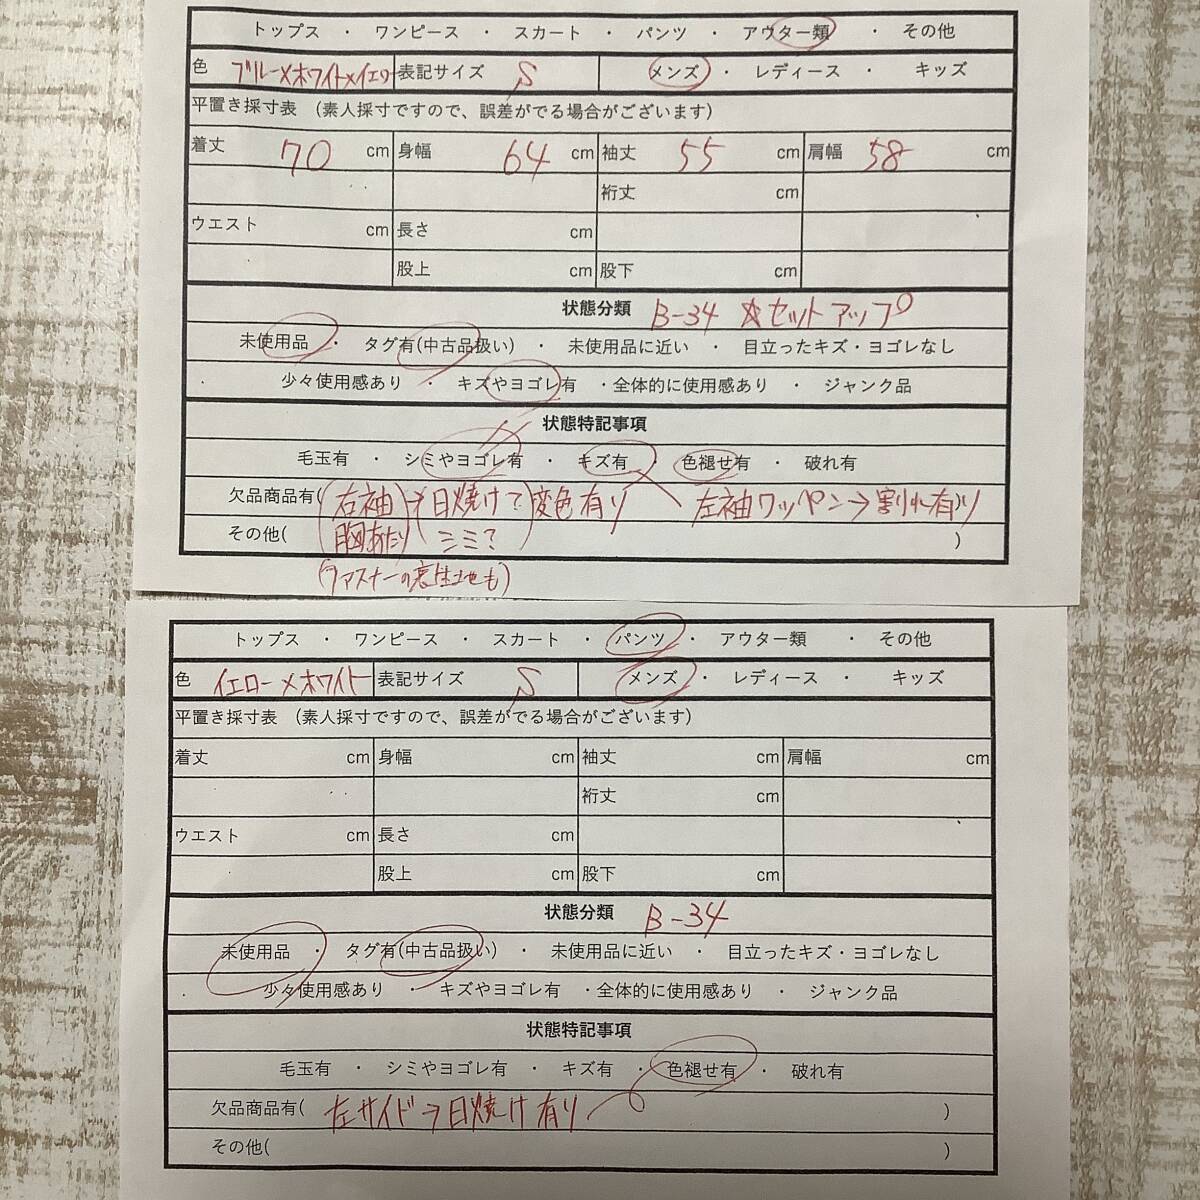 トップス ・ ワンピース ・ スカート ・ パンツ ・ アウター類 ・ その他
色 ブルー×ホワイト×イエロー 表記サイズ S メンズ ・ レディース ・ キッズ
平置き採寸表 (素人採寸ですので、誤差がでる場合がございます)
着丈 70 cm 身幅 64 cm 袖丈 55 cm 肩幅 58 cm
裄丈 cm
ウエスト cm 長さ cm
股上 cm 股下 cm
状態分類 B-34 ☆セットアップ
未使用品 ・ タグ有(中古品扱い) ・ 未使用品に近い ・ 目立ったキズ・ヨゴレなし
少々使用感あり ・ キズやヨゴレ有 ・全体的に使用感あり ・ ジャンク品
状態特記事項
毛玉有 ・ シミやヨゴレ有 ・ キズ有 ・ 色褪せ有 ・ 破れ有
欠品商品有( 右袖 → 日焼け? 変色有り 左袖ワッペン→割れ有り )
その他( 胸あたり シミ? )
(ファスナーの裏生地も)
トップス ・ ワンピース ・ スカート ・ パンツ ・ アウター類 ・ その他
色 イエロー×ホワイト 表記サイズ S メンズ ・ レディース ・ キッズ
平置き採寸表 (素人採寸ですので、誤差がでる場合がございます)
着丈 cm 身幅 cm 袖丈 cm 肩幅 cm
裄丈 cm
ウエスト cm 長さ cm
股上 cm 股下 cm
状態分類 B-34
未使用品 ・ タグ有(中古品扱い) ・ 未使用品に近い ・ 目立ったキズ・ヨゴレなし
少々使用感あり ・ キズやヨゴレ有 ・全体的に使用感あり ・ ジャンク品
状態特記事項
毛玉有 ・ シミやヨゴレ有 ・ キズ有 ・ 色褪せ有 ・ 破れ有
欠品商品有( 左サイド→日焼け有り )
その他( )